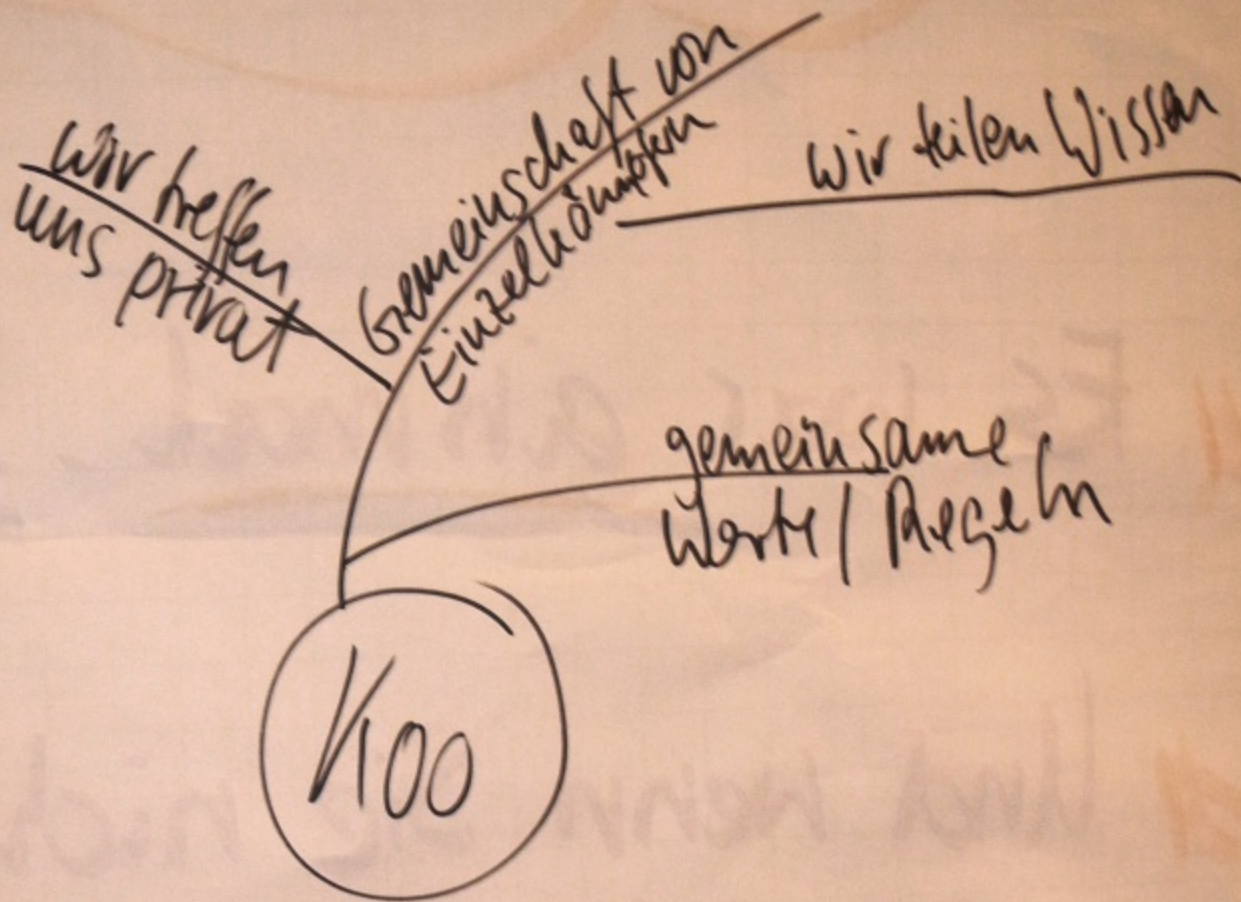 wir treffen
uns privat
Gemeinschaft von
Einzelkämpfern
wir teilen Wissen
gemeinsame
Werte / Regeln
Koo